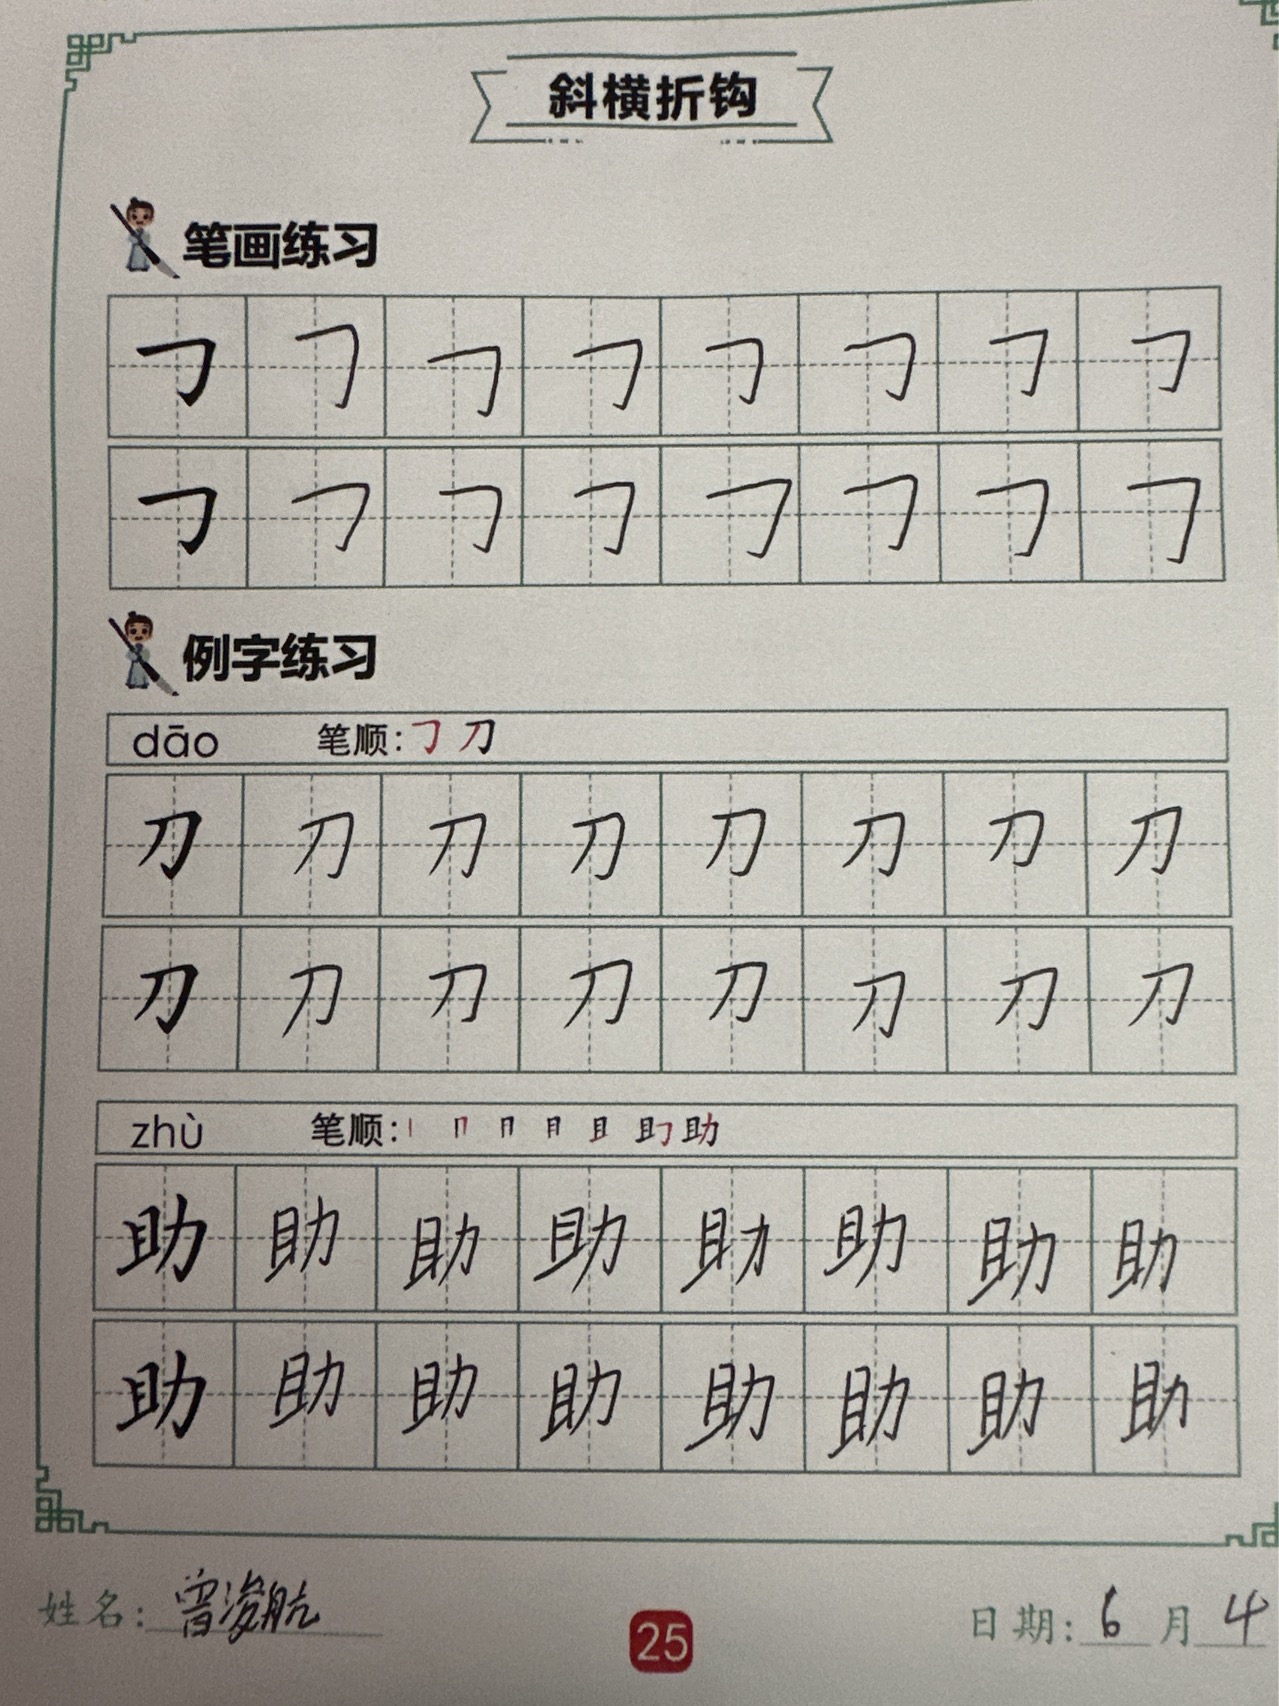 斜横折钩
笔画练习
㇆ ㇆ ㇆ ㇆ ㇆ ㇆ ㇆ ㇆
㇆ ㇆ ㇆ ㇆ ㇆ ㇆ ㇆ ㇆
例字练习
dāo 笔顺:㇆ 刀
刀 刀 刀 刀 刀 刀 刀 刀
刀 刀 刀 刀 刀 刀 刀 刀
zhù 笔顺:丨 冂 月 且 助
助 助 助 助 助 助 助 助
助 助 助 助 助 助 助 助
姓名:曾浚航
25
日期:6月4